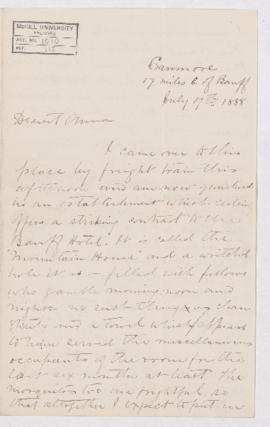 McGILL UNIVERSITY
ARCHIVES
ACC. NO. 1010
REF.
Canmore
17 miles E of Banff
July 17th 1888
Dearest Anna
I came over to this
place by freight train this
afternoon and am now quartered
in an establishment which
offers a striking contrast to the
Banff Hotel. It is called the
"Mountain House" and a wretched
hole it is – filled with fellows
who gamble morning noon and
night. no such thing as clean
sheets and a towel which appears
to have served the miscellaneous
occupants of the room for the
last six months at least. The
mosquitos too are frightful, so
that altogether I expect to put in